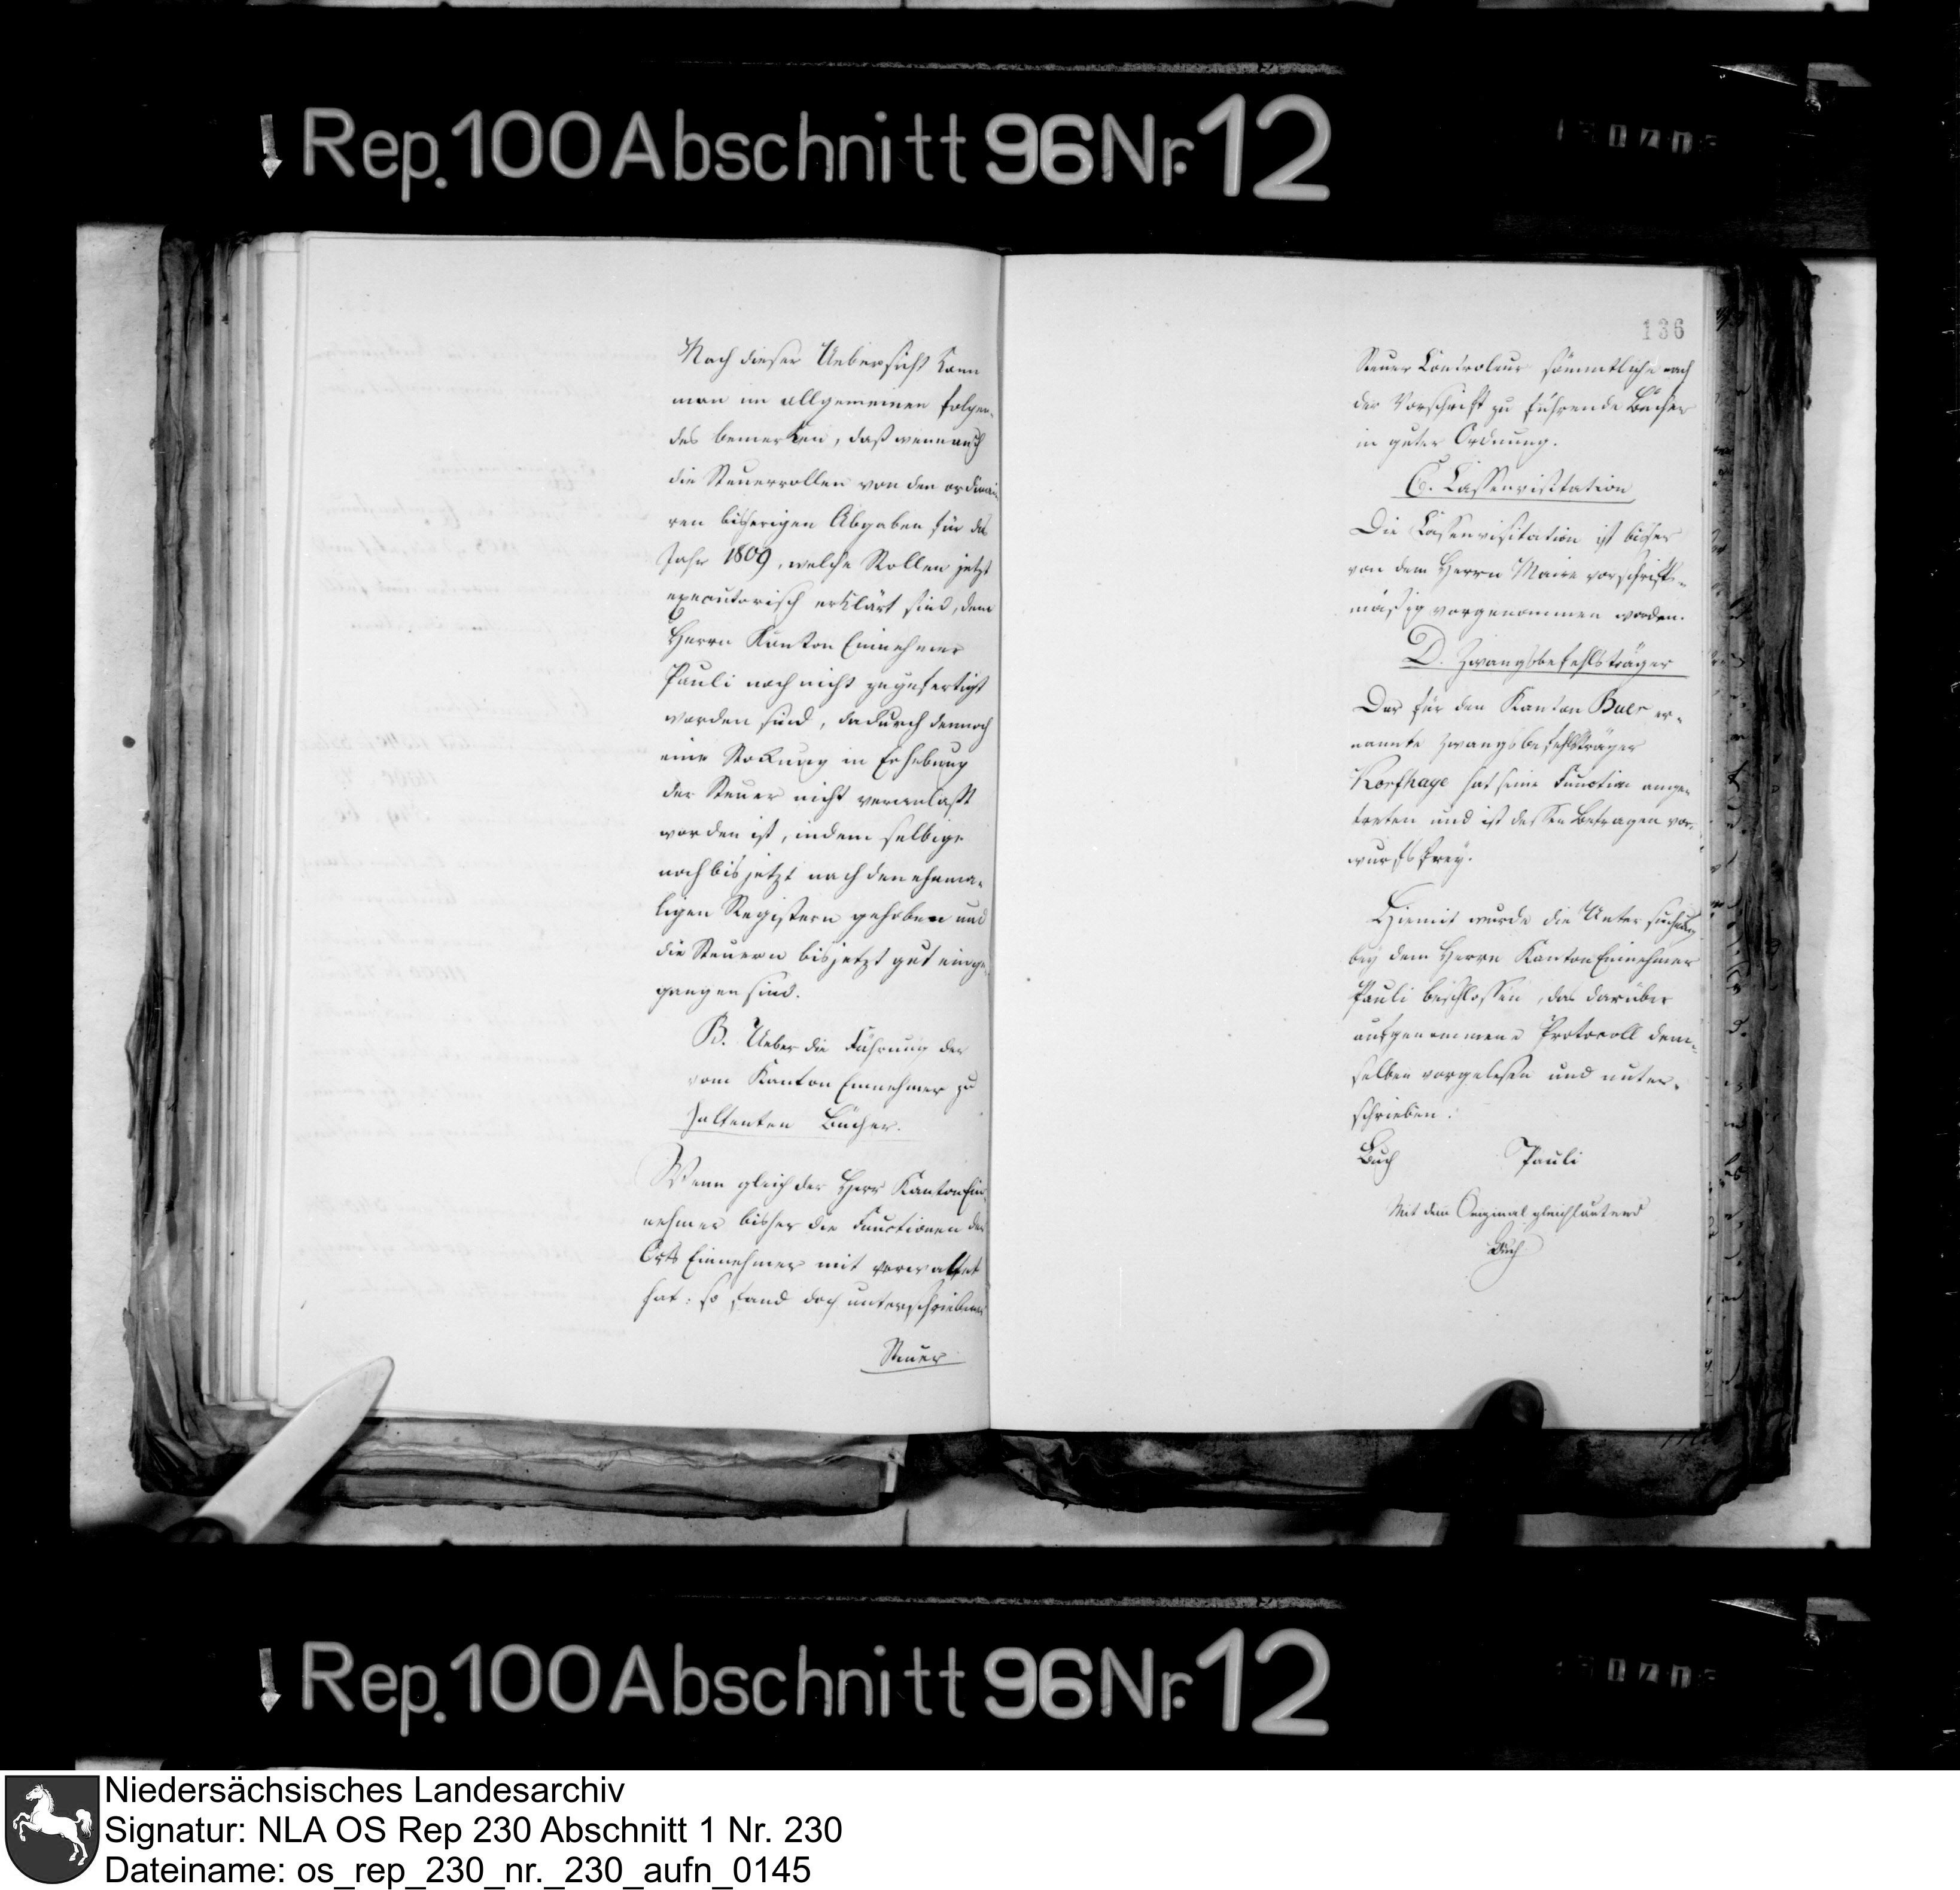 Rep. 100 Abschnitt 96 Nr. 12
Nach dieser Uebersicht kann
man im allgemeinen folgen-
des bemerken, daß wenn auch
die Steuerrollen von den ordinai-
ren bisherigen Abgaben für das
Jahr 1809, welche Rollen jetzt
executorisch erklärt sind, dem
Herrn Kanton Einnehmer
Pauli noch nicht zugefertigt
worden sind, dadurch dennoch
eine Stockung in Erhebung
der Steuer nicht veranlaßt
worden ist, indem selbige
noch bis jetzt nach den ehema-
ligen Registern gehoben und
die Steuern bis jetzt gut einge-
gangen sind.
B. Ueber die Führung der
vom Kanton Einnehmer zu
haltenten Bücher.
Wenn gleich der Herr Kanton Ein-
nehmer bisher die Functionen des
Orts Einnehmer mit verwaltet
hat: so fand doch unterschriebener
Steuer
136
Steuer Controleur sämmtliche nach
der Vorschrift zu führende Bücher
in guter Ordnung.
C. Cassenvisitation
Die Cassenvisitation ist bisher
von dem Herrn Maire vorschrifts-
mäßig vorgenommen worden.
D. Zwangsbefehlsträger
Der für den Kanton Buer er-
nannte Zwangsbefehlsträger
Korfhage hat seine Function ange-
treten und ist dessen Betragen vor-
wurfsfrey.
Hiemit wurde die Untersuchung
bey dem Herrn Kanton Einnehmer
Pauli beschlossen, das darüber
aufgenommene Protocoll dem-
selben vorgelesen und unter-
schrieben.
Buch Pauli
Mit dem Original gleichlautend
Buch
Rep. 100 Abschnitt 96 Nr. 12
Niedersächsisches Landesarchiv
Signatur: NLA OS Rep 230 Abschnitt 1 Nr. 230
Dateiname: os_rep_230_nr._230_aufn_0145